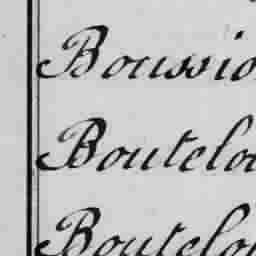 Boussio
Boutelou
Boutelou